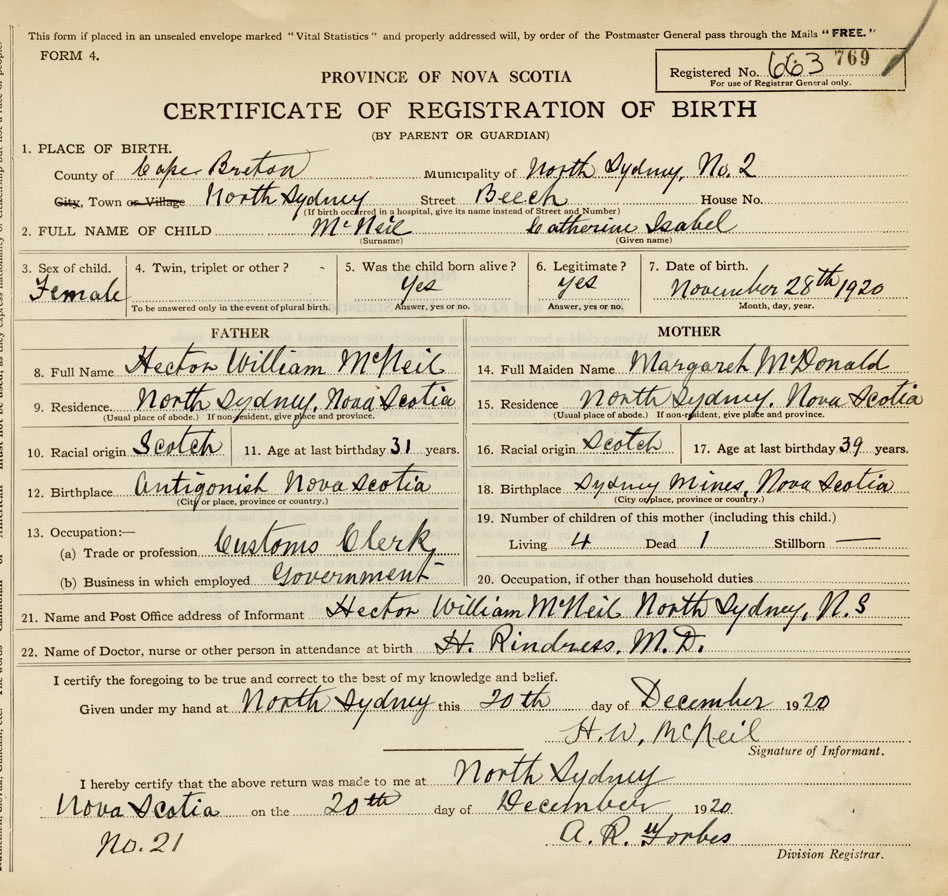 This form if placed in an unsealed envelope marked "Vital Statistics" and properly addressed will, by order of the Postmaster General pass through the Mails "FREE."
FORM 4.
Registered No. 663 769
For use of Registrar General only.
PROVINCE OF NOVA SCOTIA
CERTIFICATE OF REGISTRATION OF BIRTH
(BY PARENT OR GUARDIAN)
1. PLACE OF BIRTH.
County of Cape Breton Municipality of North Sydney, No. 2
City, Town or Village North Sydney Street Beech House No.
(If birth occurred in a hospital, give its name instead of Street and Number)
2. FULL NAME OF CHILD McNeil Catherine Isabel
(Surname) (Given name)
3. Sex of child. 4. Twin, triplet or other? - 5. Was the child born alive? 6. Legitimate? 7. Date of birth.
Female Yes Yes November 28th 1920
To be answered only in the event of plural birth. Answer, yes or no. Answer, yes or no. Month, day, year.
FATHER
8. Full Name Hector William McNeil
9. Residence. North Sydney, Nova Scotia
(Usual place of abode.) If non-resident, give place and province.
10. Racial origin Scotch 11. Age at last birthday 31 years.
12. Birthplace Antigonish Nova Scotia
(City or place, province or country.)
13. Occupation:—
(a) Trade or profession Customs Clerk,
(b) Business in which employed Government
MOTHER
14. Full Maiden Name Margaret McDonald
15. Residence North Sydney, Nova Scotia
(Usual place of abode.) If non-resident, give place and province.
16. Racial origin Scotch 17. Age at last birthday 39 years.
18. Birthplace Sydney Mines, Nova Scotia
(City or place, province or country.)
19. Number of children of this mother (including this child.)
Living 4 Dead 1 Stillborn —
20. Occupation, if other than household duties
21. Name and Post Office address of Informant Hector William McNeil North Sydney, N.S
22. Name of Doctor, nurse or other person in attendance at birth H. Rindress, M.D.
I certify the foregoing to be true and correct to the best of my knowledge and belief.
Given under my hand at North Sydney this 20th day of December 1920
H. W. McNeil
Signature of Informant.
I hereby certify that the above return was made to me at North Sydney
Nova Scotia on the 20th day of December 1920
No. 21 A. R. Forbes
Division Registrar.